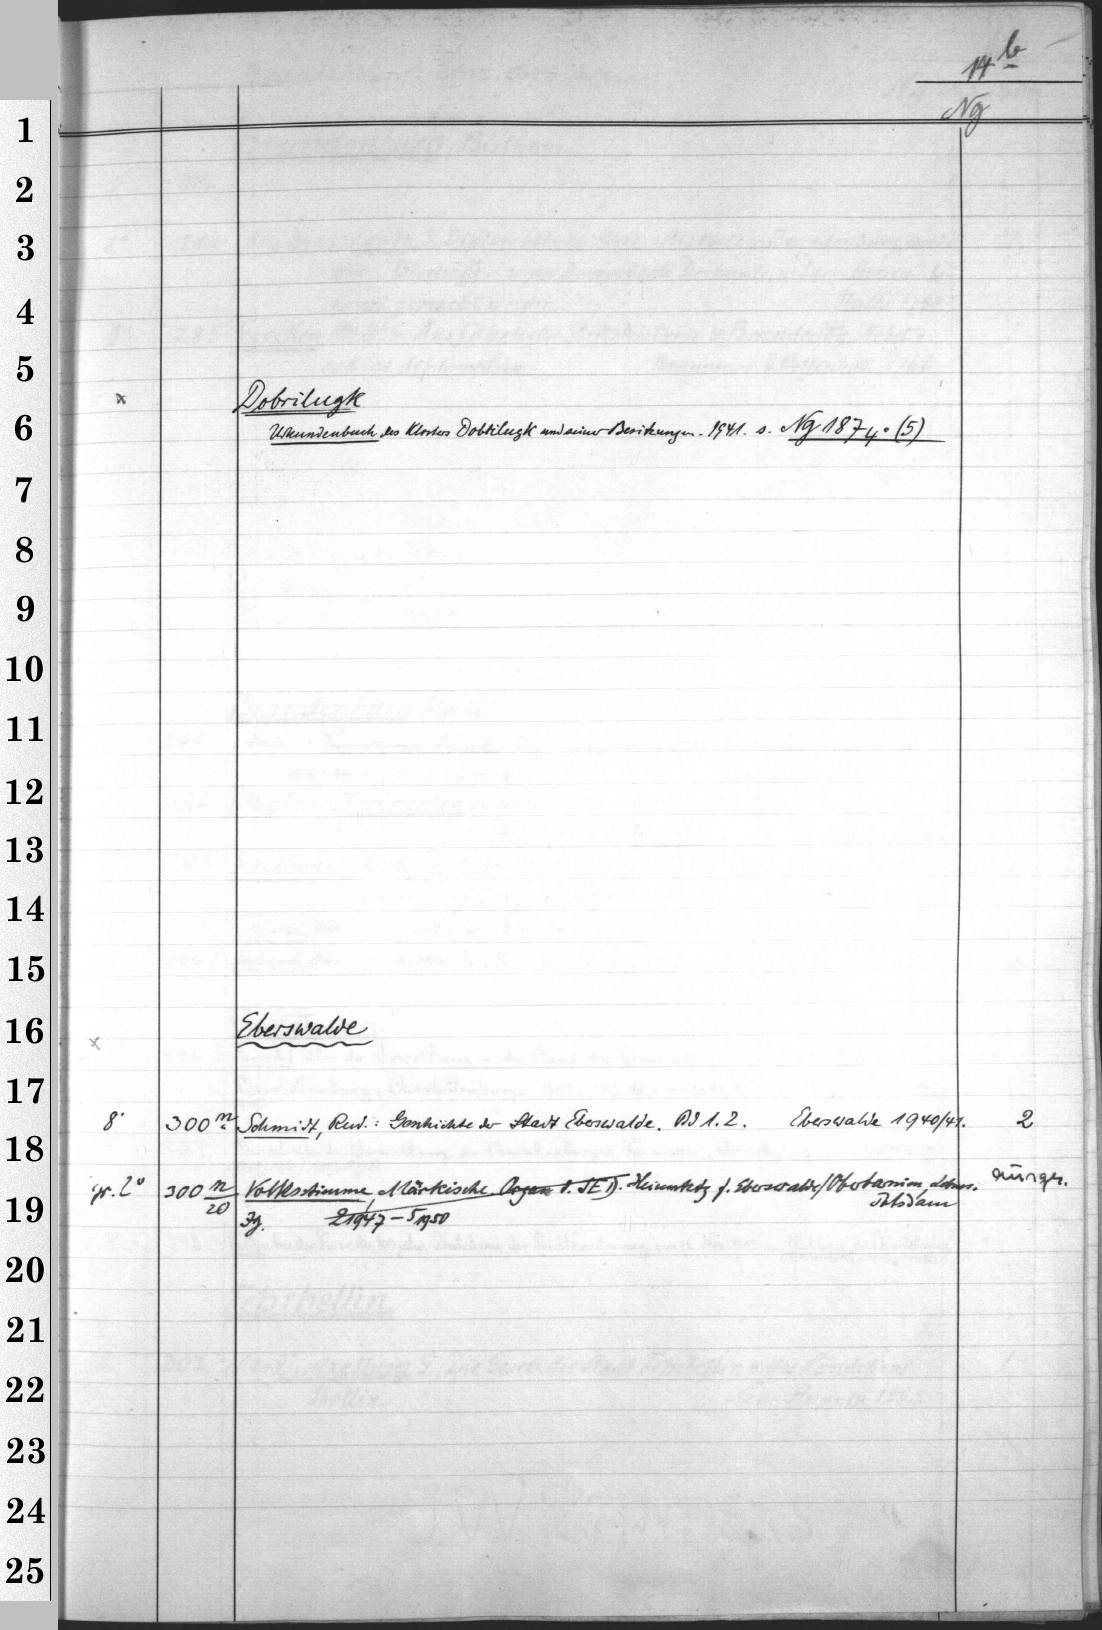 14 b
Ng
1
2
3
4
5
x Dobrilugk
6 Urkundenbuch des Klosters Dobrilugk und seiner Besitzungen. 1941. s. Ng 1874. (5)
7
8
9
10
11
12
13
14
15
16 Eberswalde
x
17
8° 300 n Schmidt, Rud.: Geschichte der Stadt Eberswalde. Bd 1. 2. Eberswalde 1940/41. 2
18
gr. 2° 300 n/20 Volksstimme, Märkische Organ d. SED. Heimatztg f. Eberswalde/Oberbarnim
19 Jg. 2 1947 – 5 1950 Potsdam
20
21
22
23
24
25